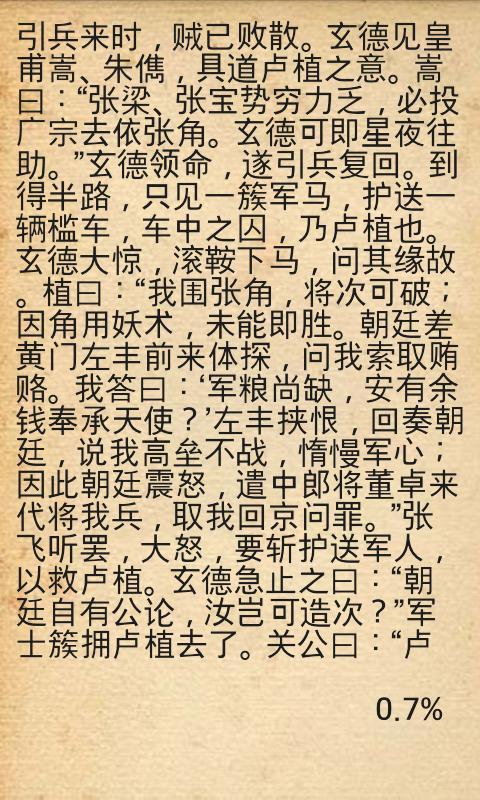 引兵来时，贼已败散。玄德见皇
甫嵩、朱儁，具道卢植之意。嵩
曰：“张梁、张宝势穷力乏，必投
广宗去依张角。玄德可即星夜往
助。”玄德领命，遂引兵复回。到
得半路，只见一簇军马，护送一
辆槛车，车中之囚，乃卢植也。
玄德大惊，滚鞍下马，问其缘故
。植曰：“我围张角，将次可破；
因角用妖术，未能即胜。朝廷差
黄门左丰前来体探，问我索取贿
赂。我答曰：‘军粮尚缺，安有余
钱奉承天使？’左丰挟恨，回奏朝
廷，说我高垒不战，惰慢军心；
因此朝廷震怒，遣中郎将董卓来
代将我兵，取我回京问罪。”张
飞听罢，大怒，要斩护送军人，
以救卢植。玄德急止之曰：“朝
廷自有公论，汝岂可造次？”军
士簇拥卢植去了。关公曰：“卢
0.7%